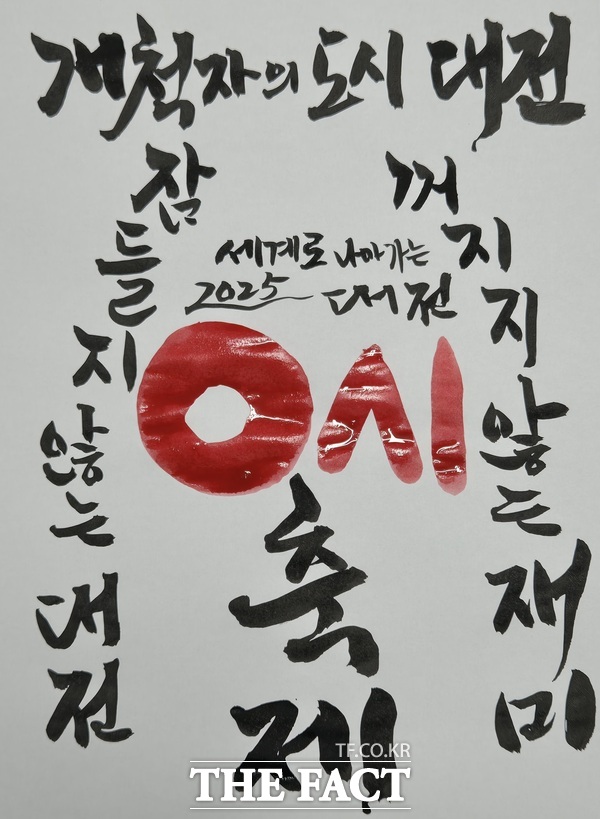 개척자의 도시 대전
잠들지 않는 대전
꺼지지 않는 재미
세계로 나아가는
2025 대전
0시
축제
TF.CO.KR
THE FACT